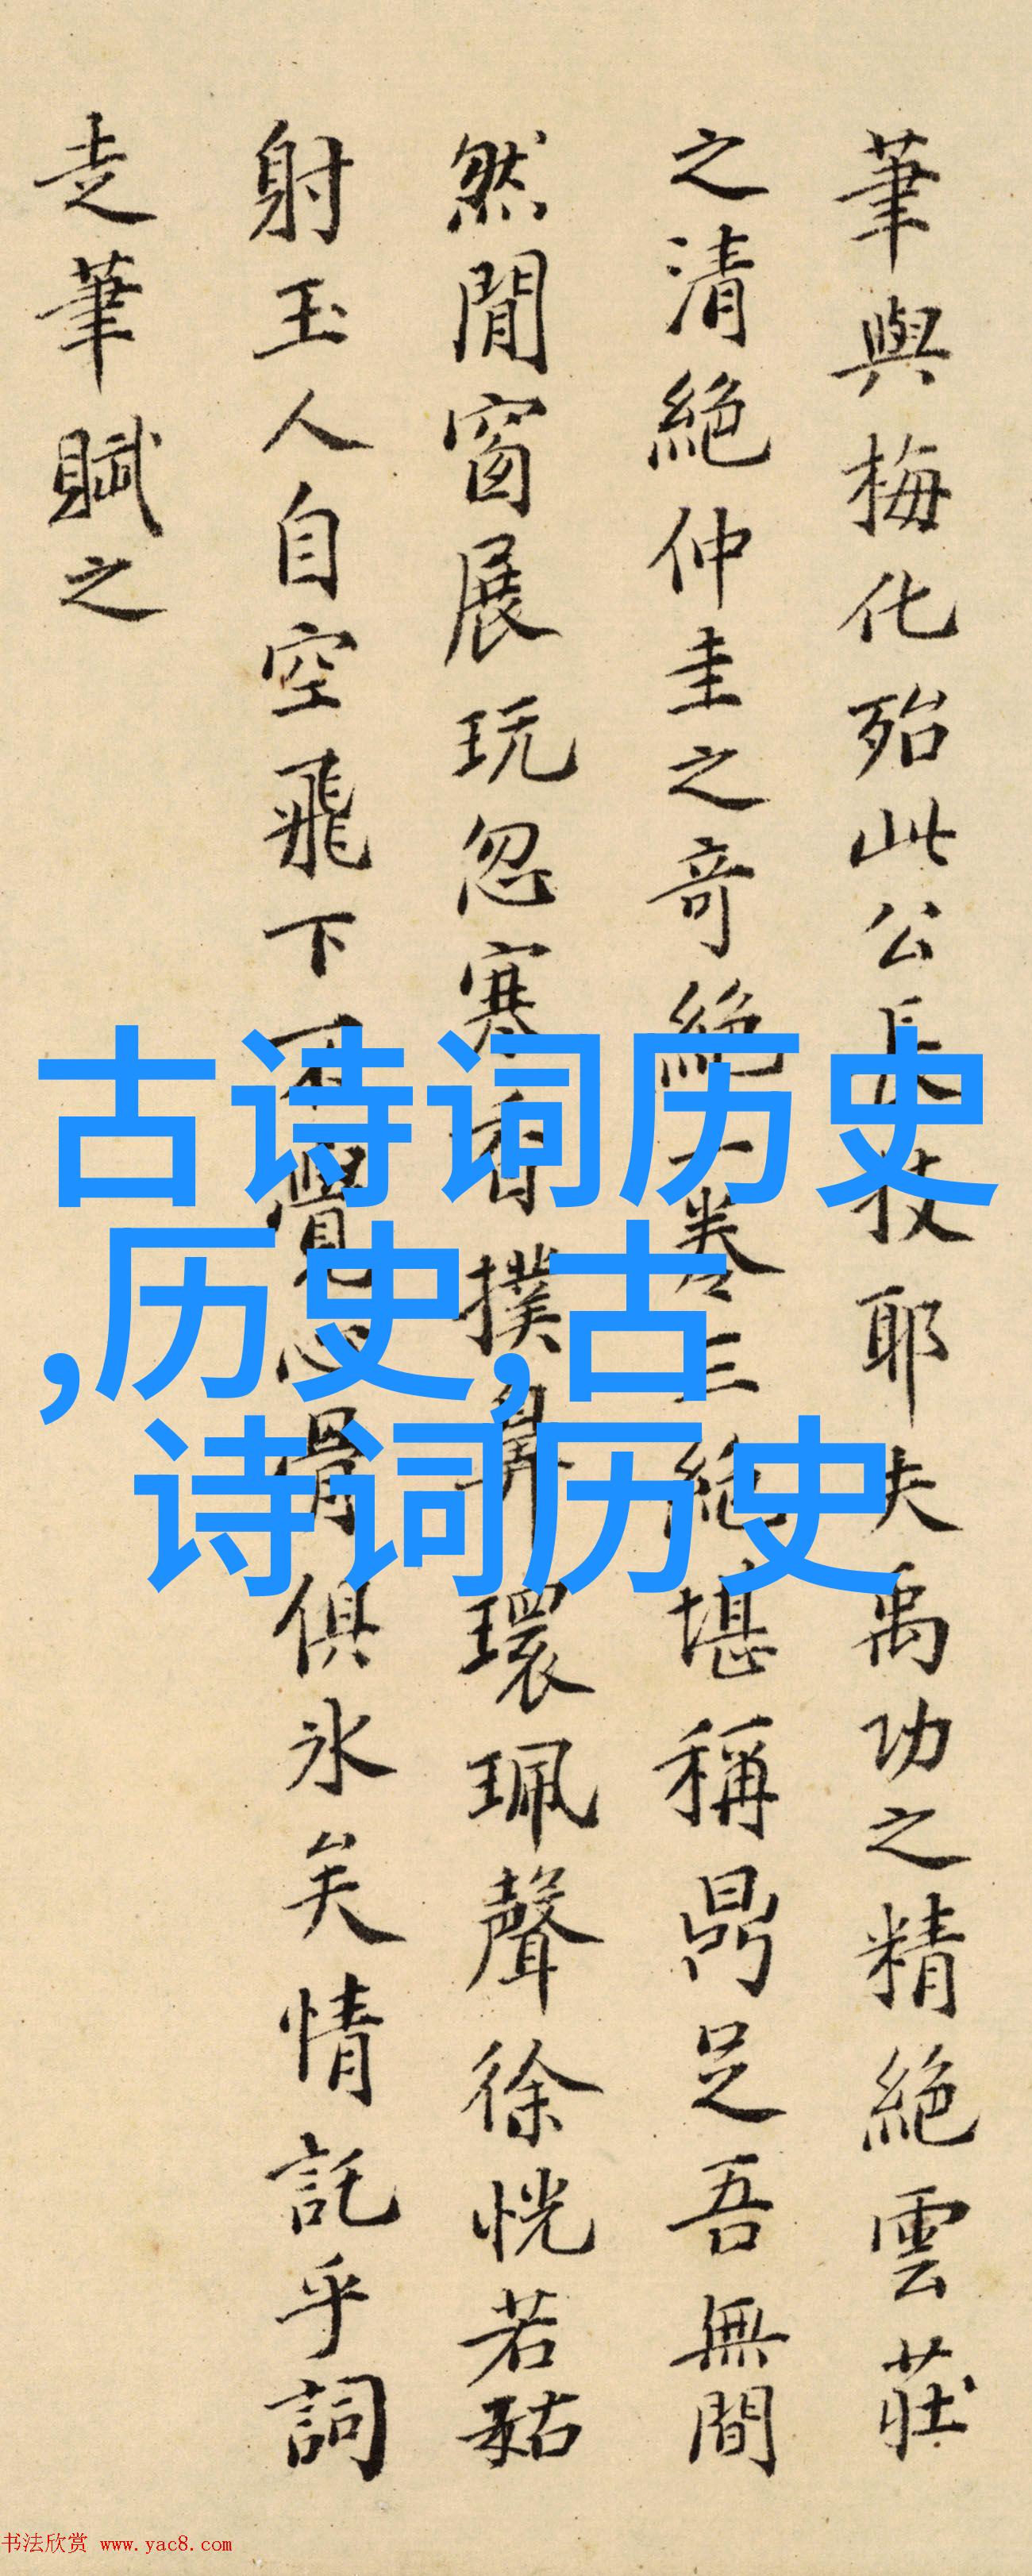 筆與梅化殆此公長技耶夫禹功之精絕雲莊
之清絕仲圭之奇絕一卷三絕堪稱鼎足吾無間
然閒窗展玩忽寒香撲鼻環珮聲徐恍若𮂹
射玉人自空飛下不覺心骨俱氷矣情託乎詞
走筆賦之
古诗词历史
,历史,古
诗词历史
书法欣赏 www.yac8.com